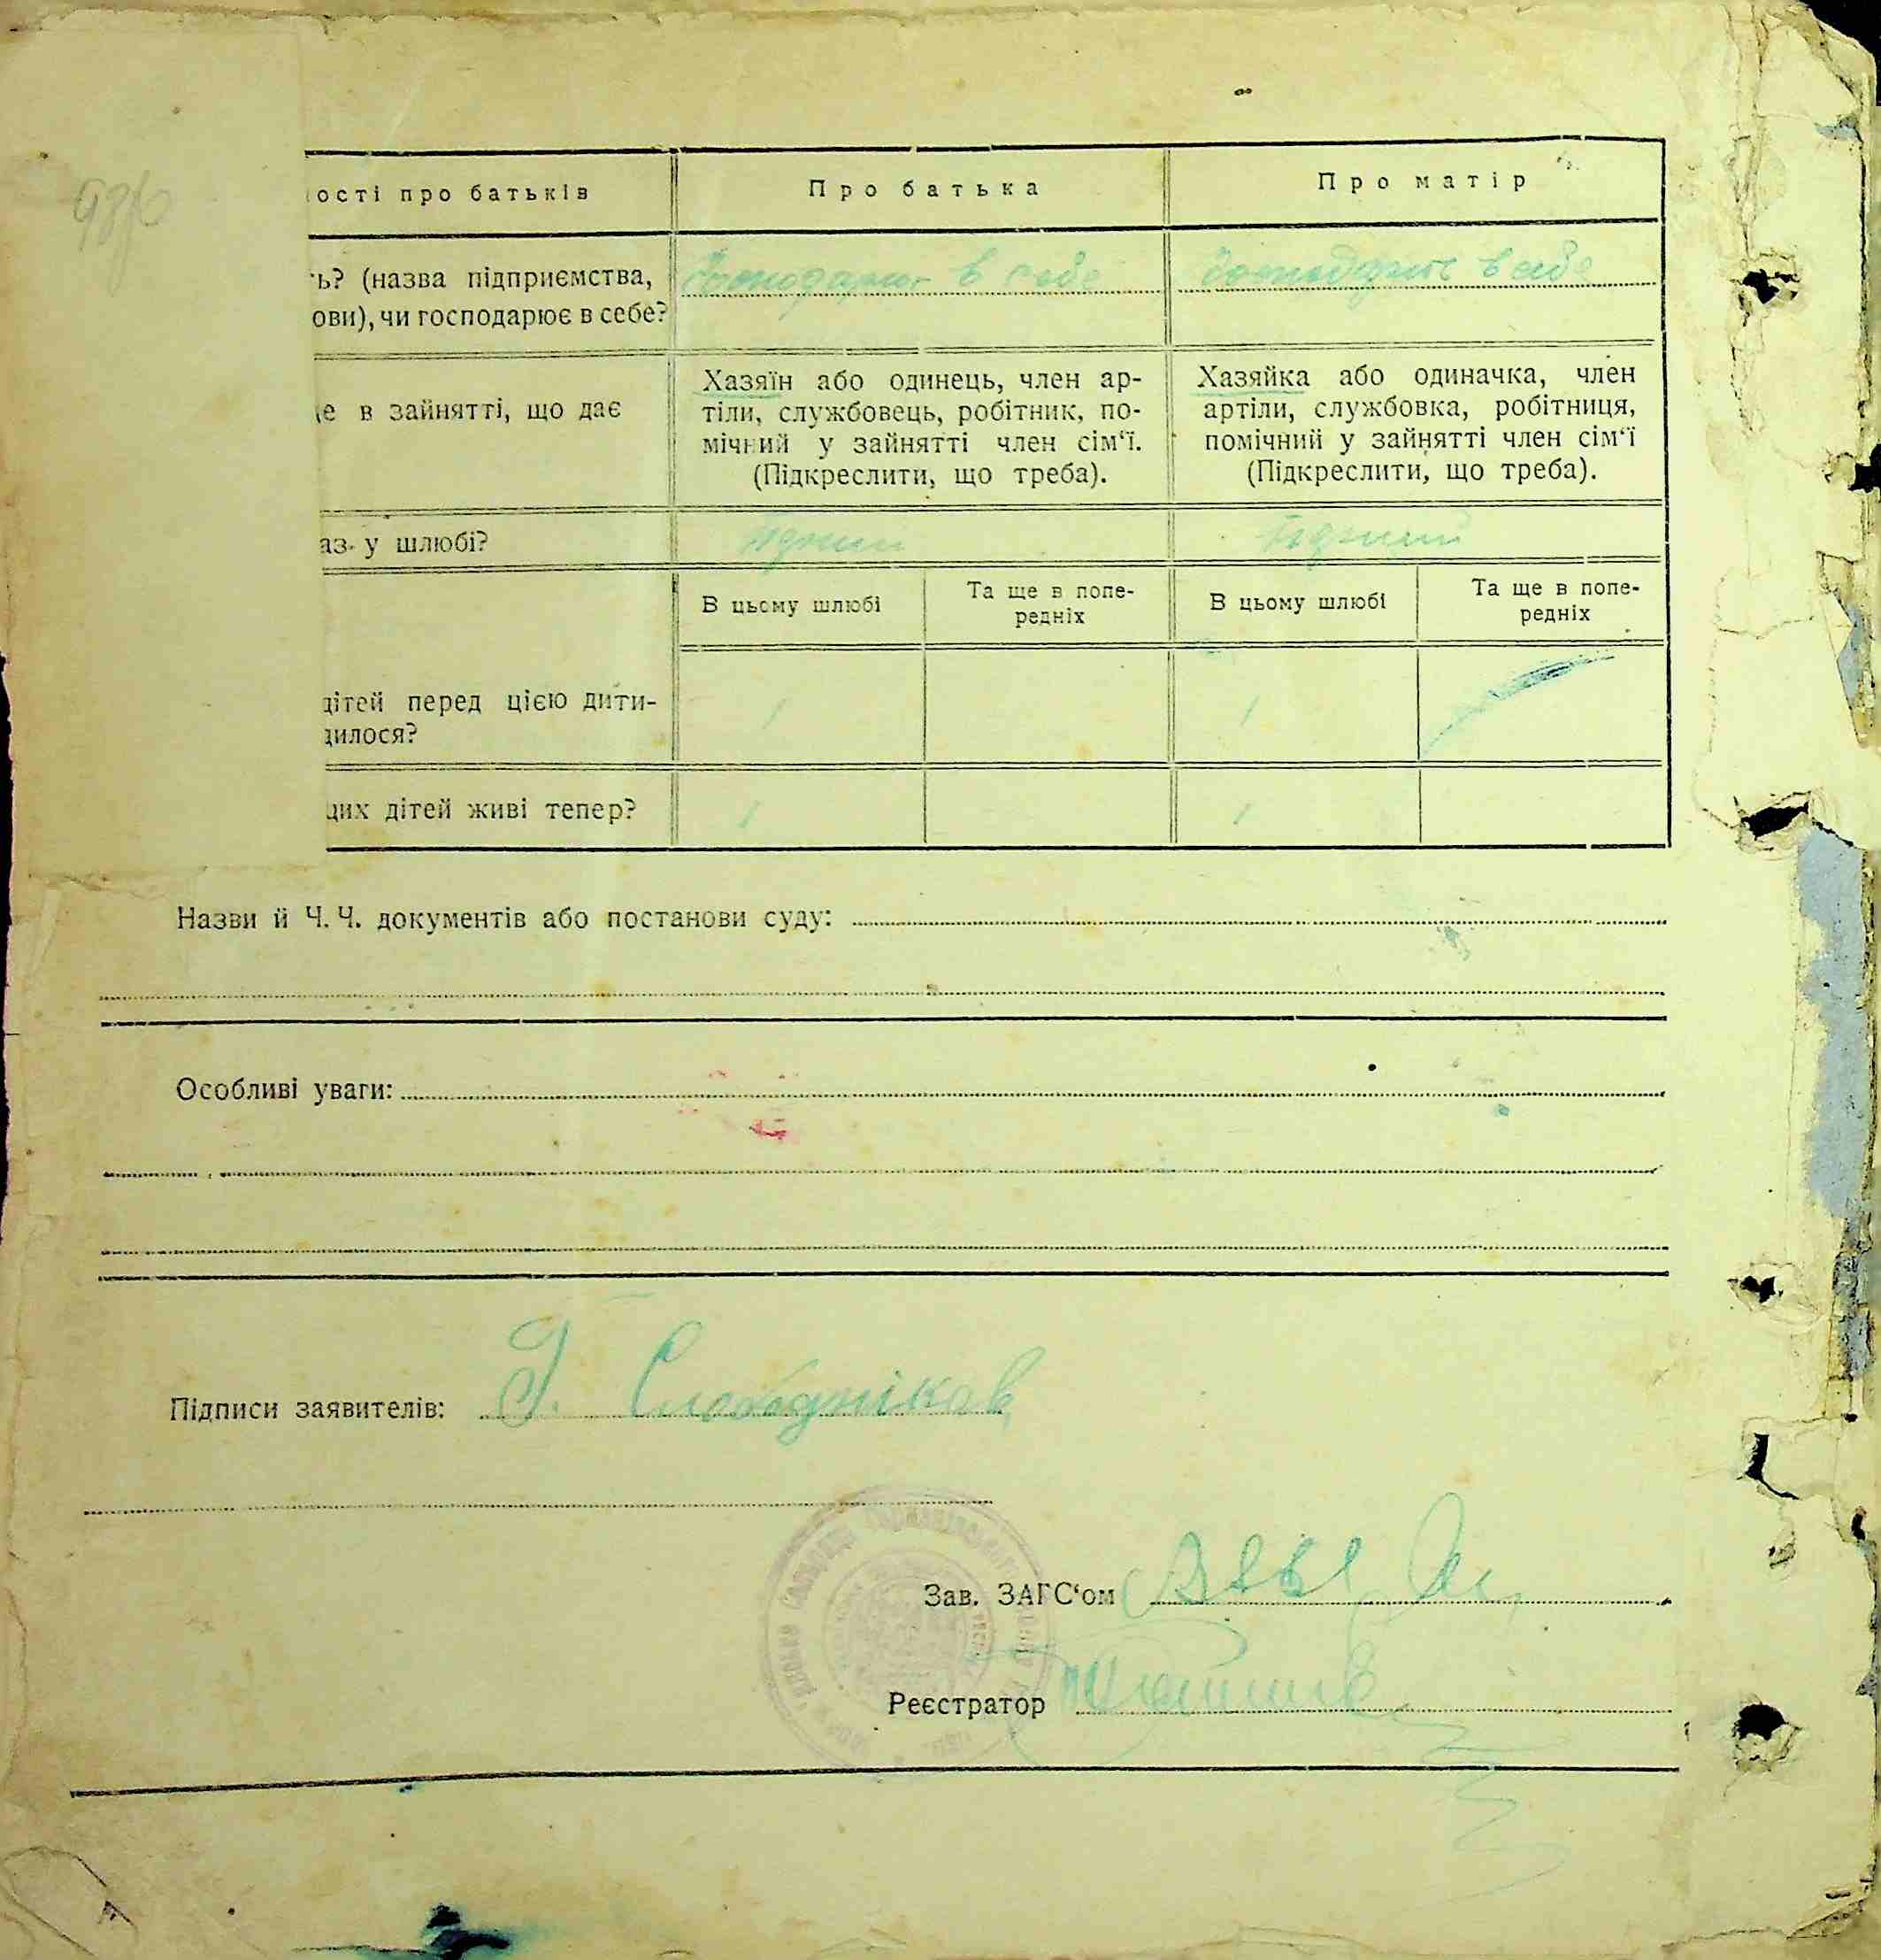 ості про батьків
Про батька
Про матір
ь? (назва підприємства,
ови), чи господарює в себе?
Господарює в себе
Господарює в себе
е в зайнятті, що дає
Хазяїн або одинець, член ар-
тіли, службовець, робітник, по-
мічний у зайнятті член сім‘ї.
(Підкреслити, що треба).
Хазяйка або одиначка, член
артіли, службовка, робітниця,
помічний у зайнятті член сім‘ї
(Підкреслити, що треба).
аз у шлюбі?
В цьому шлюбі
Та ще в попе-
редніх
В цьому шлюбі
Та ще в попе-
редніх
дітей перед цією дити-
дилося?
1
1
цих дітей живі тепер?
1
1
Назви й Ч. Ч. документів або постанови суду:
Особливі уваги:
Підписи заявителів:
Зав. ЗАГС‘ом
Реєстратор